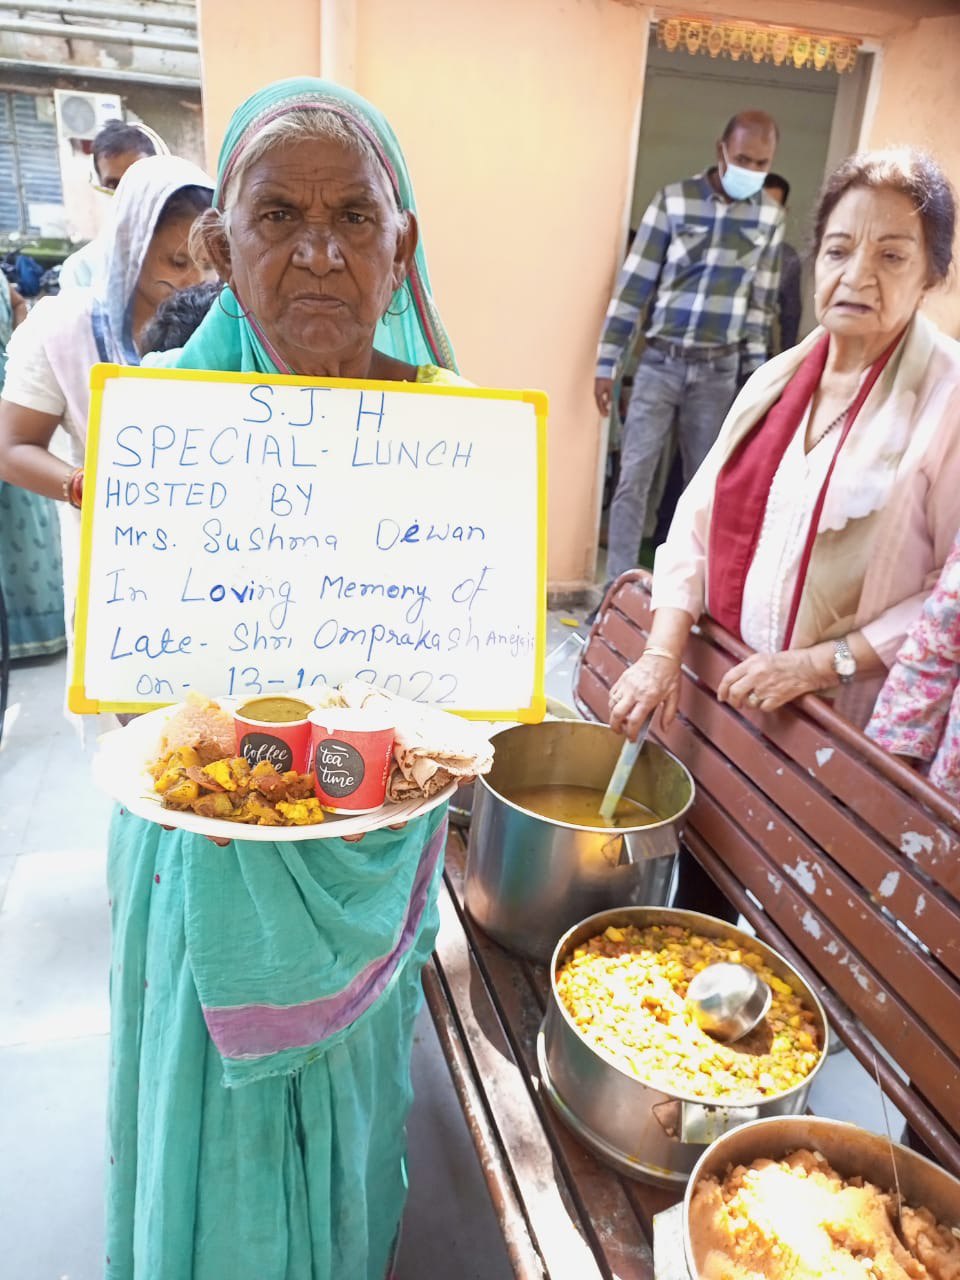 S.J.H
SPECIAL- LUNCH
HOSTED BY
Mrs. Sushma Dewan
In Loving Memory of
Late- Shri Omprakash Anejaji
on- 13-10-2022
Coffee
tea
time